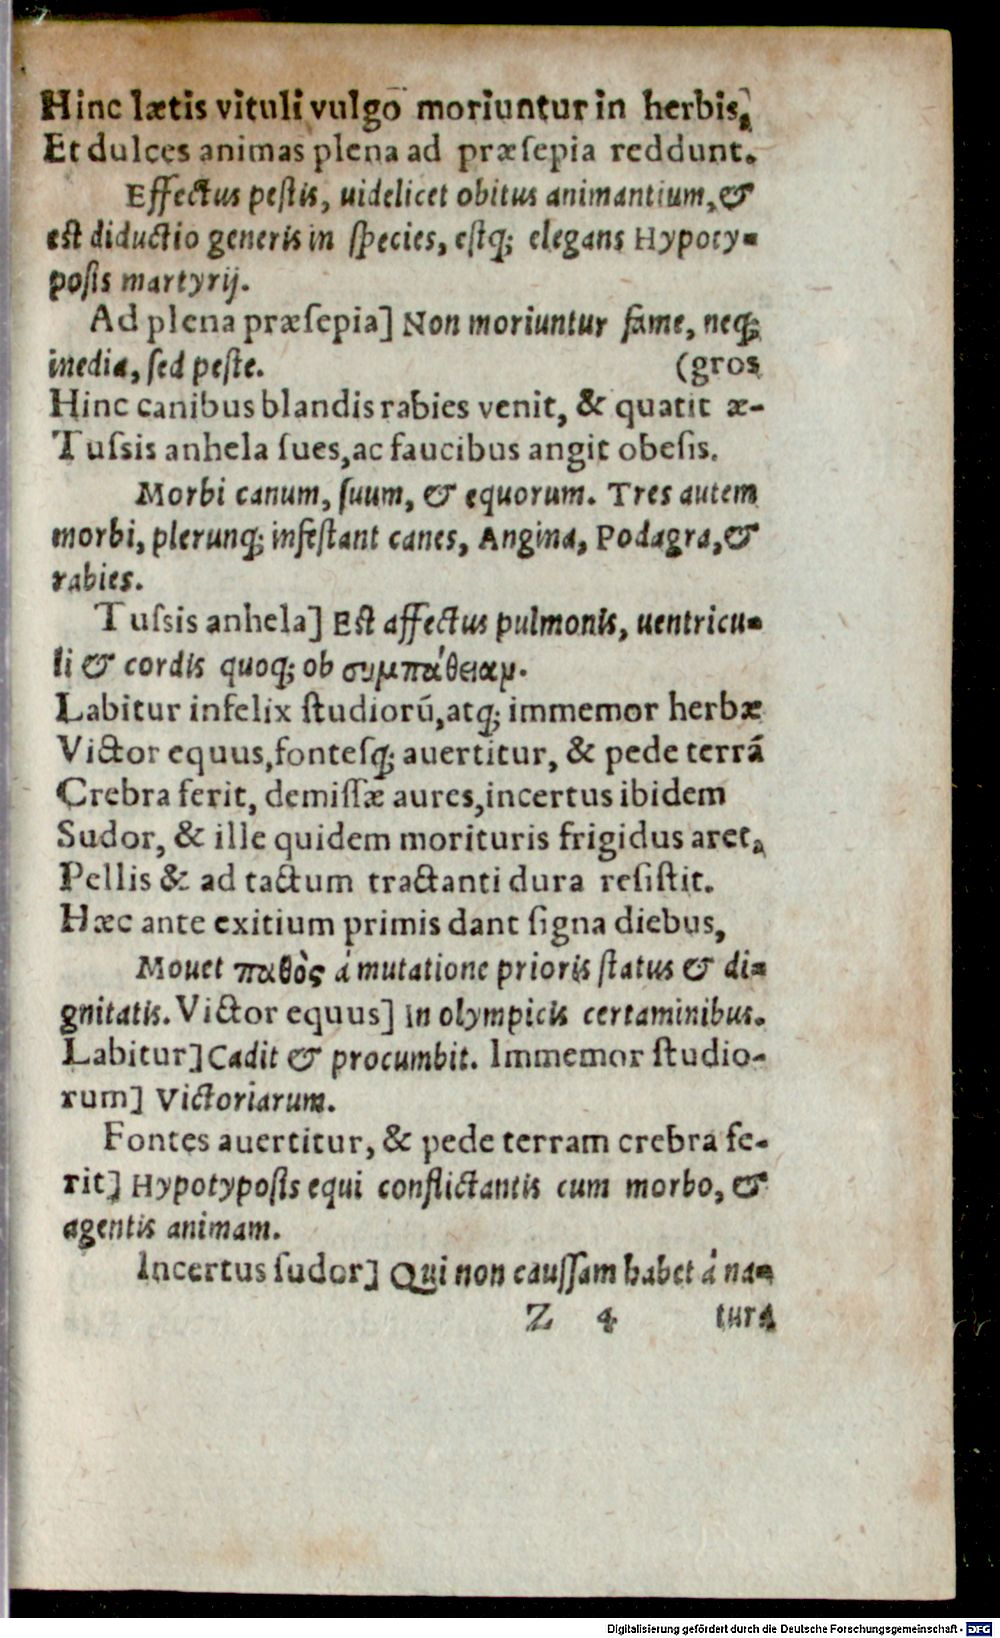 Hinc lætis vituli vulgo moriuntur in herbis,
Et dulces animas plena ad præſepia reddunt.
Effectus peſtis, uidelicet obitus animantium, &
est diductio generis in ſpecies, eſtq; elegans Hypoty-
poſis martyrij.
Ad plena præſepia] Non moriuntur fame, neq;
inedia, ſed peſte. (gros
Hinc canibus blandis rabies venit, & quatit æ-
Tuſsis anhela ſues, ac faucibus angit obeſis.
Morbi canum, ſuum, & equorum. Tres autem
morbi, plerunq; infeſtant canes, Angina, Podagra, &
rabies.
Tuſsis anhela] Est affectus pulmonis, uentricu-
li & cordis quoq; ob συμπάθειαμ.
Labitur infelix ſtudiorū, atq; immemor herbæ
Victor equus, fonteſq; auertitur, & pede terrā
Crebra ferit, demiſſæ aures, incertus ibidem
Sudor, & ille quidem morituris frigidus aret,
Pellis & ad tactum tractanti dura reſiſtit.
Hæc ante exitium primis dant ſigna diebus,
Mouet παθὸς á mutatione prioris ſtatus & di-
gnitatis. Victor equus] in olympicis certaminibus.
Labitur] Cadit & procumbit. Immemor ſtudio-
rum] Victoriarum.
Fontes auertitur, & pede terram crebra fe-
rit] Hypotypoſis equi conflictantis cum morbo, &
agentis animam.
Incertus ſudor] Qui non cauſſam habet á na-
Z 4 tura
Digitalisierung gefördert durch die Deutsche Forschungsgemeinschaft - DFG